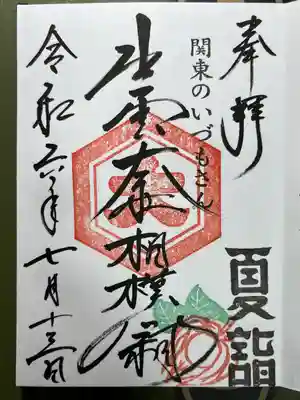 奉拝
夏詣
関東のいづもさん
出雲大社相模分祠
令和六年七月十三日